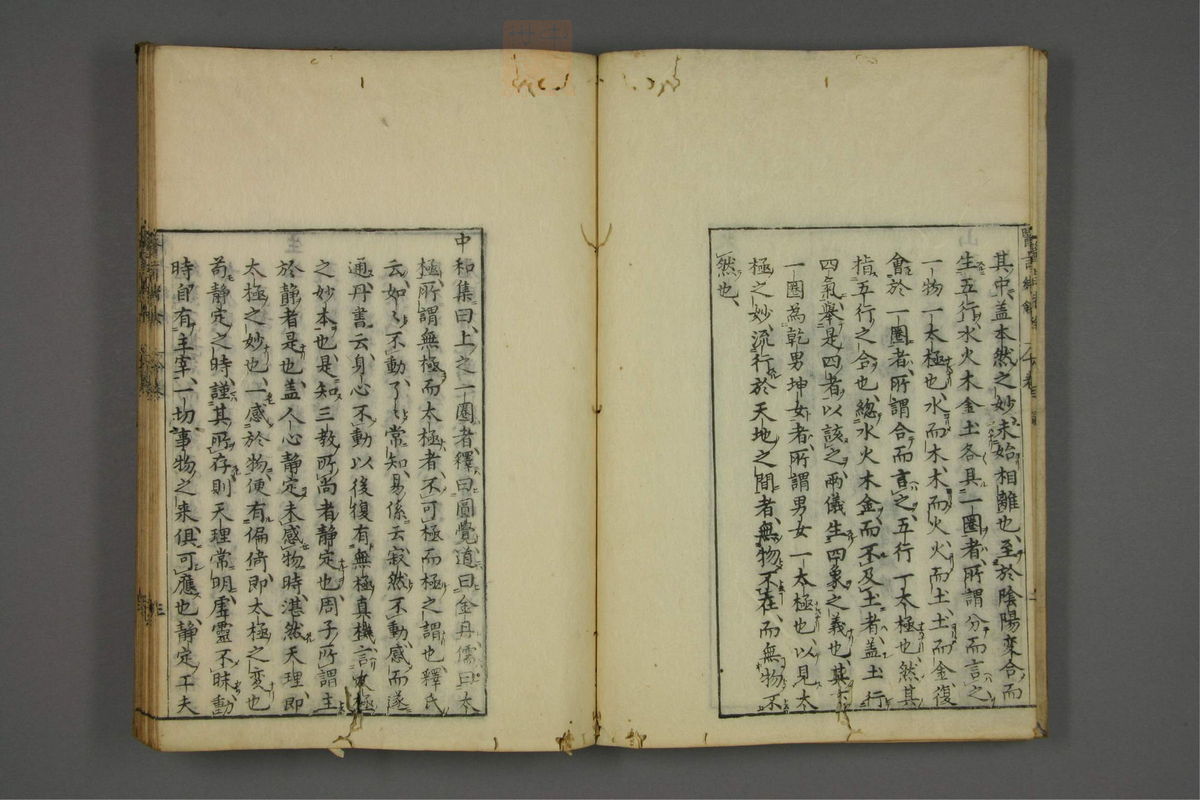 其中、盖本然之妙、未始相離也、至於陰陽変合、而
生五行、水火木金土各具一圏者、所謂分而言之
一物一太極也、水而木、木而火、火而土、土而金、復
會於一圏者、所謂合而言之、五行一太極也、然其
指五行之合也、總水火木金而不及土者、盖土行
四氣、舉是四者以該之、兩儀生四象之義也、其
一圏為乾男坤女者、所謂男女一太極也、以見太
極之妙、流行於天地之間者、無物不在、而無物不
然也、
中和集曰、上之一圏者、釋曰圓覺、道曰金丹、儒曰太
極、所謂無極而太極者、不可極而極之謂也、釋氏
云、如〻不動、了〻常知、易係云、寂然不動、感而遂
通、丹書云、身心不動以後、復有無極真機、言太極
之妙本也、是知三教所尚者静定也、周子所謂主
於静者是也、盖人心静定、未感物時、湛然天理、即
太極之妙也、一感於物、便有偏倚、即太極之変也
苟静定之時、謹其所存、則天理常明、虚靈不昧、動
時自有主宰、一切事物之来、俱可應也、静定工夫